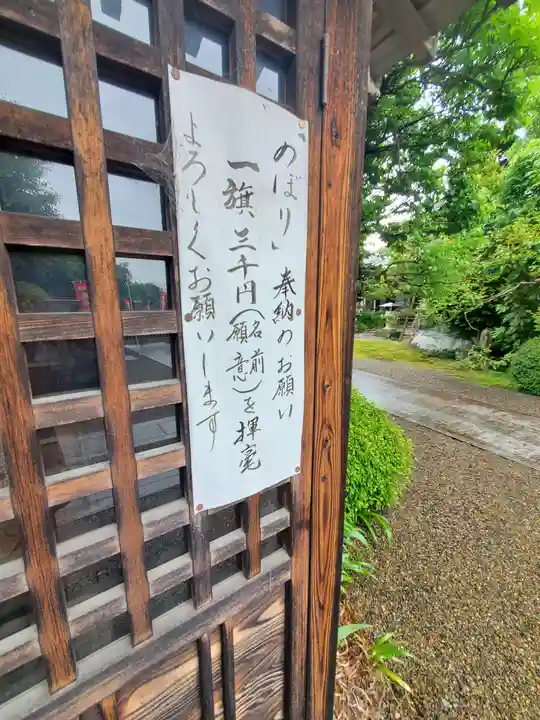 「のぼり」奉納のお願い
一旗三千円(名前願意)を揮毫
よろしくお願いします